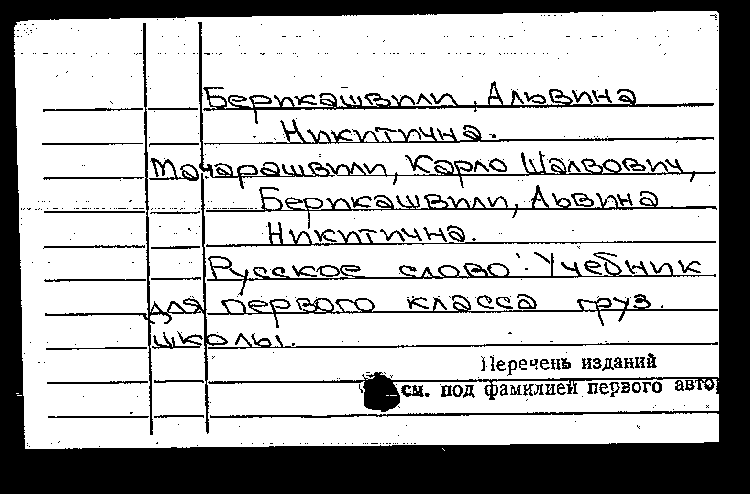 Берикашвили, Альвина
Никитична.
Мачарашвили, Карло Шалвович,
Берикашвили, Львина
Никитична.
Русское слово: Учебник
для первого класса груз.
школы.
Перечень изданий
см. под фамилией первого авто